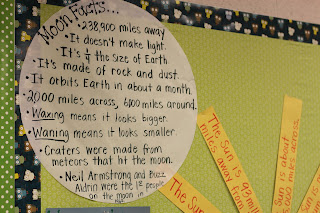 Moon Facts...
• 238,900 miles away
• It doesn't make light.
• It's 1/4 the size of Earth.
• It's made of rock and dust.
• It orbits Earth in about a month.
• 2,000 miles across, 6,100 miles around.
• Waxing means it looks bigger.
• Waning means it looks smaller.
• Craters were made from
meteors that hit the moon.
• Neil Armstrong and Buzz
Aldrin were the 1st people
on the moon in
The Sun is 93 mil
miles away from
Sun is about
miles across.
The Sun